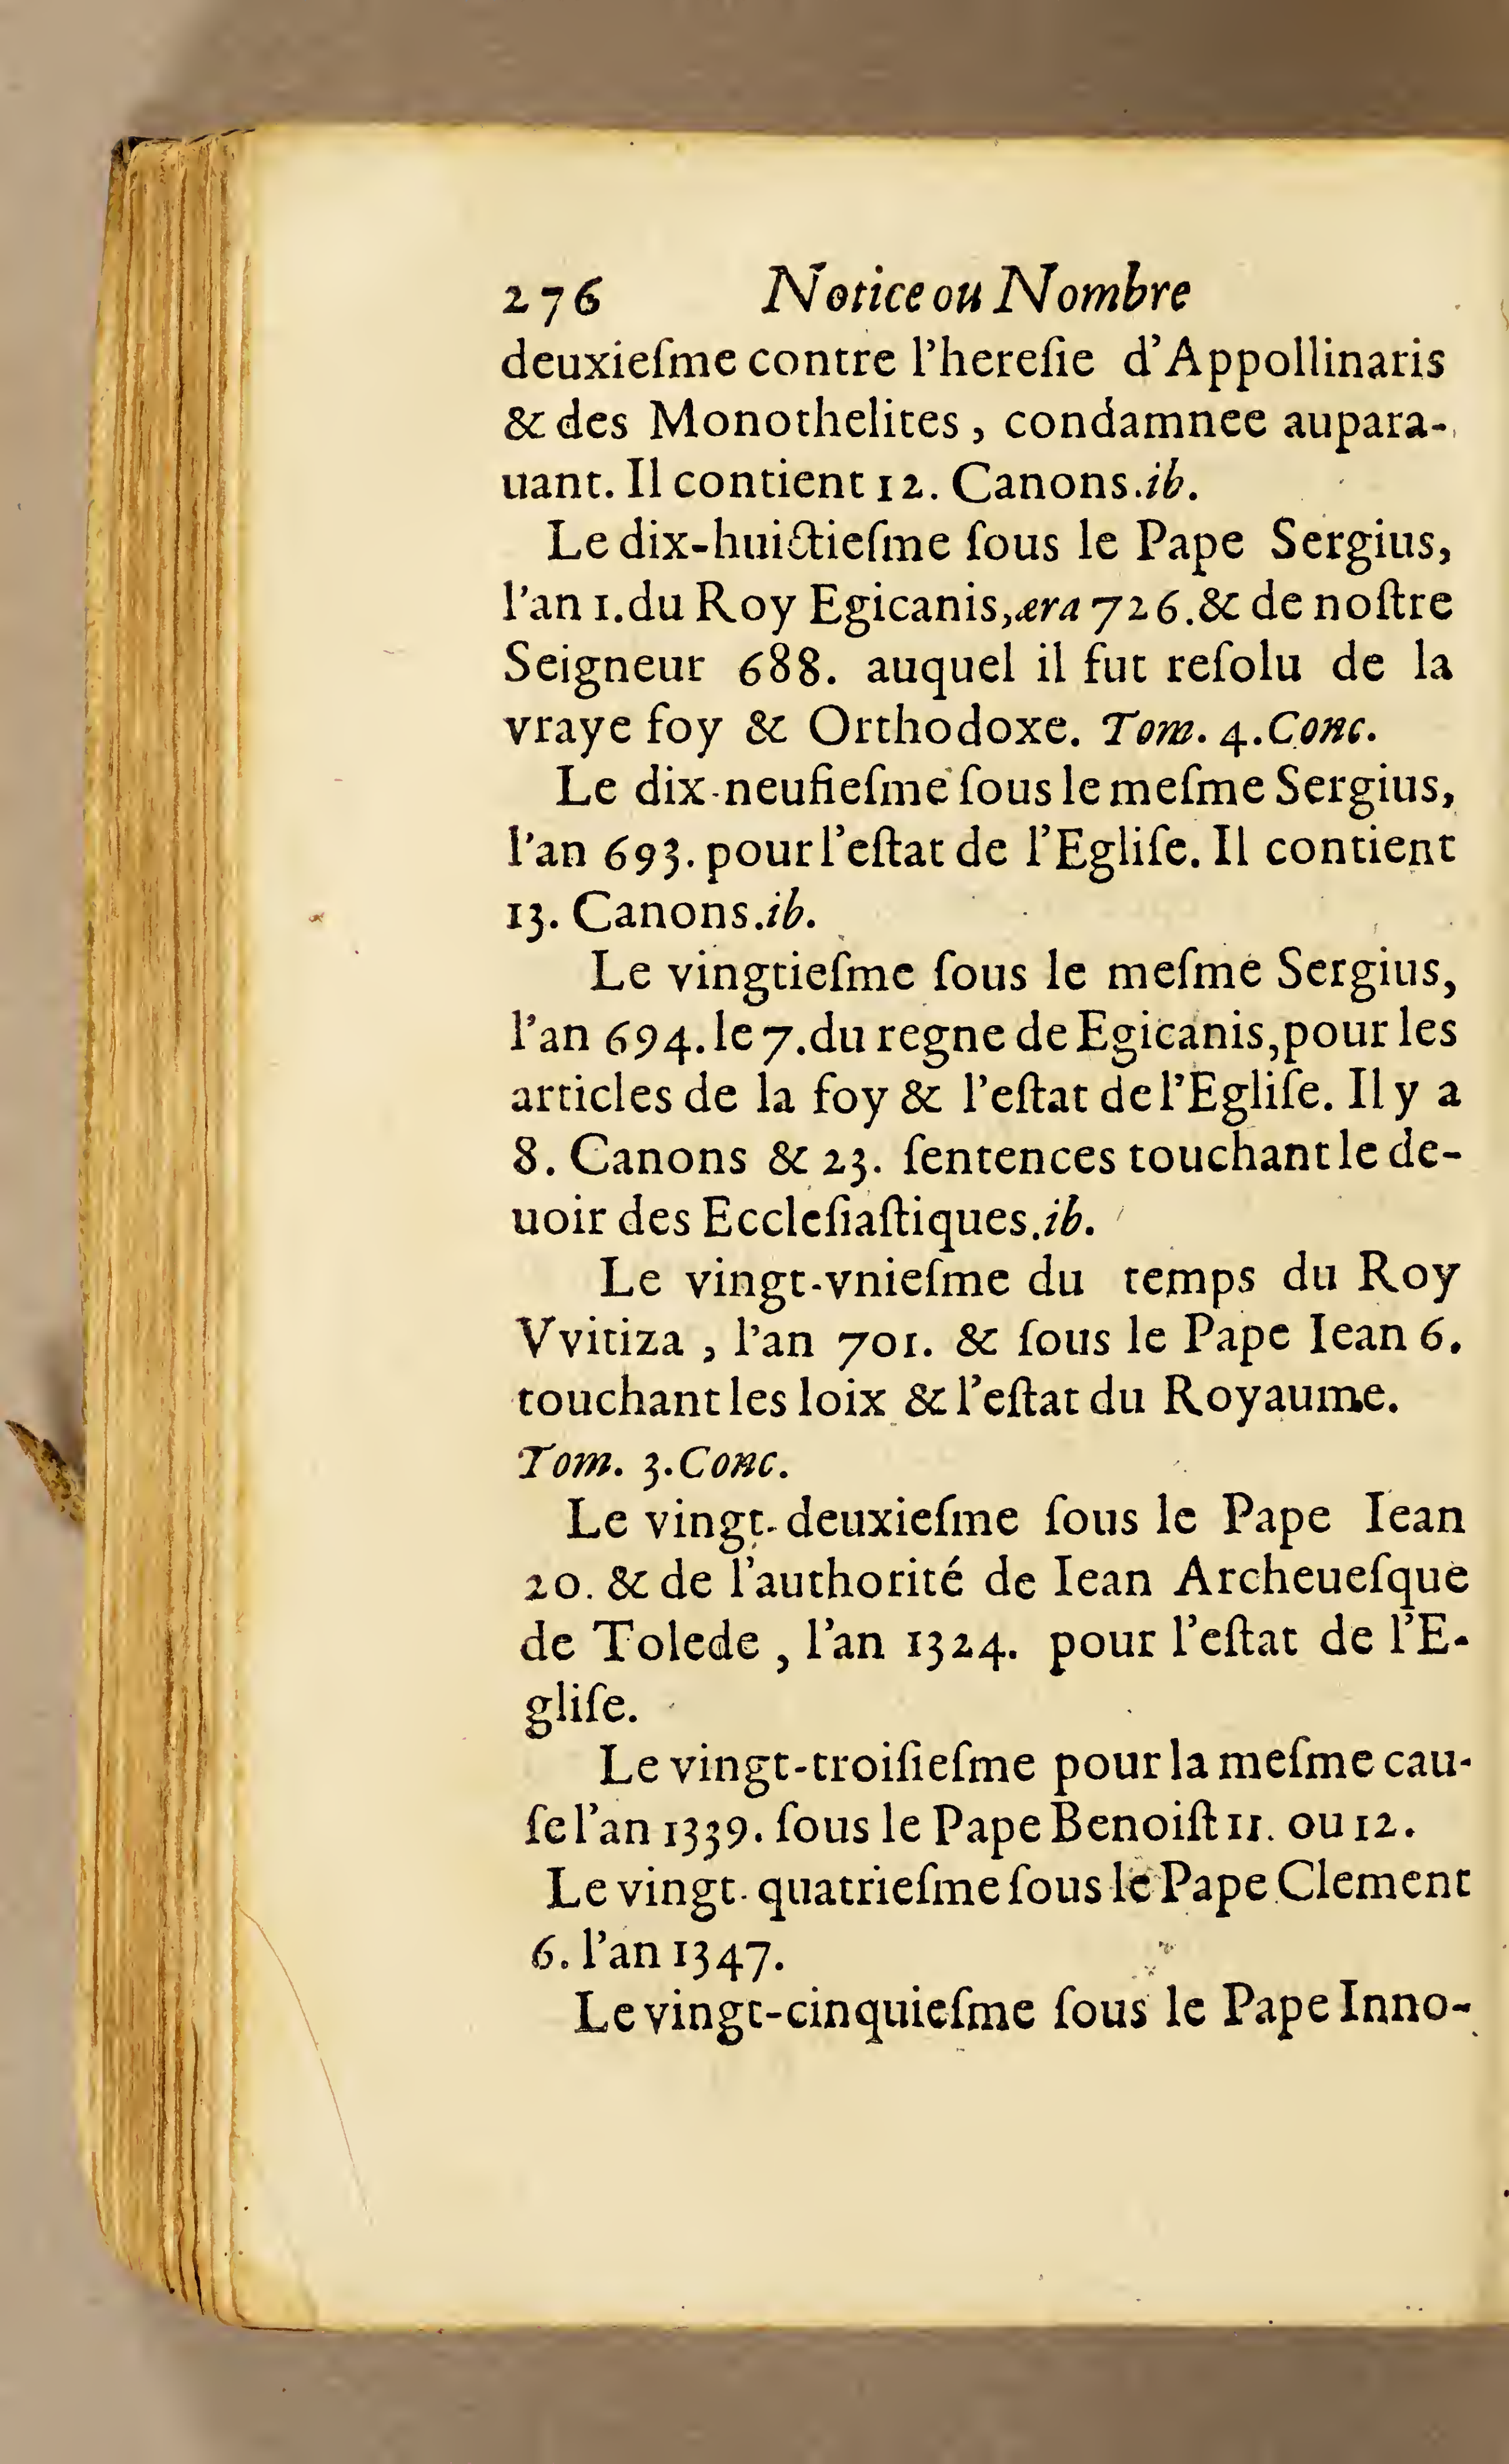 276 Notice ou Nombre
deuxieſme contre l'hereſie d'Appollinaris
& des Monothelites, condamnee aupara-
uant. Il contient 12. Canons.ib.
Le dix-huictieſme ſous le Pape Sergius,
l'an 1.du Roy Egicanis,æra 726.& de noſtre
Seigneur 688. auquel il fut reſolu de la
vraye foy & Orthodoxe. Tom. 4.Conc.
Le dix-neufieſme ſous le meſme Sergius,
l'an 693. pour l'eſtat de l'Egliſe. Il contient
13. Canons.ib.
Le vingtieſme ſous le meſme Sergius,
l'an 694.le 7.du regne de Egicanis,pour les
articles de la foy & l'eſtat de l'Egliſe. Il y a
8. Canons & 23. ſentences touchant le de-
uoir des Eccleſiaſtiques.ib.
Le vingt-vnieſme du temps du Roy
Vvitiza , l'an 701. & ſous le Pape Iean 6.
touchant les loix & l'eſtat du Royaume.
Tom. 3.Conc.
Le vingt-deuxieſme ſous le Pape Iean
20. & de l'authorité de Iean Archeueſque
de Tolede , l'an 1324. pour l'eſtat de l'E-
gliſe.
Le vingt-troiſieſme pour la meſme cau-
ſe l'an 1339. ſous le Pape Benoiſt 11. ou 12.
Le vingt-quatrieſme ſous le Pape Clement
6. l'an 1347.
Le vingt-cinquieſme ſous le Pape Inno-